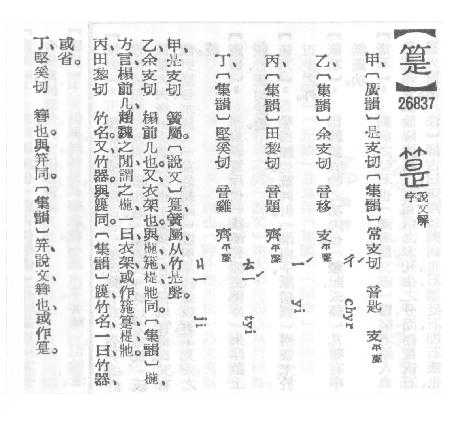 【䈕】
26837
䈕
說文解字
甲、〔廣韻〕是支切〔集韻〕常支切 音匙 支平聲
ㄔˊ chyr
乙、〔集韻〕余支切 音移 支平聲
ㄧˊ yi
丙、〔集韻〕田黎切 音題 齊平聲
ㄊㄧˊ tyi
丁、〔集韻〕堅奚切 音雞 齊平聲
ㄐㄧ ji
甲、是支切 簧屬。〔說文〕䈕、簧屬、从竹是聲。
乙、余支切 榻前几也。又衣架也。與椸、箷、同。〔集韻〕椸、
方言、榻前几、趙魏之間謂之椸、一曰衣架、或作箷、䈕、
丙、田黎切 竹名。又竹器。與同。〔集韻〕竹名、一曰竹器、
或省。
丁、堅奚切 簪也。與笄同。〔集韻〕笄、說文簪也、或作䈕。